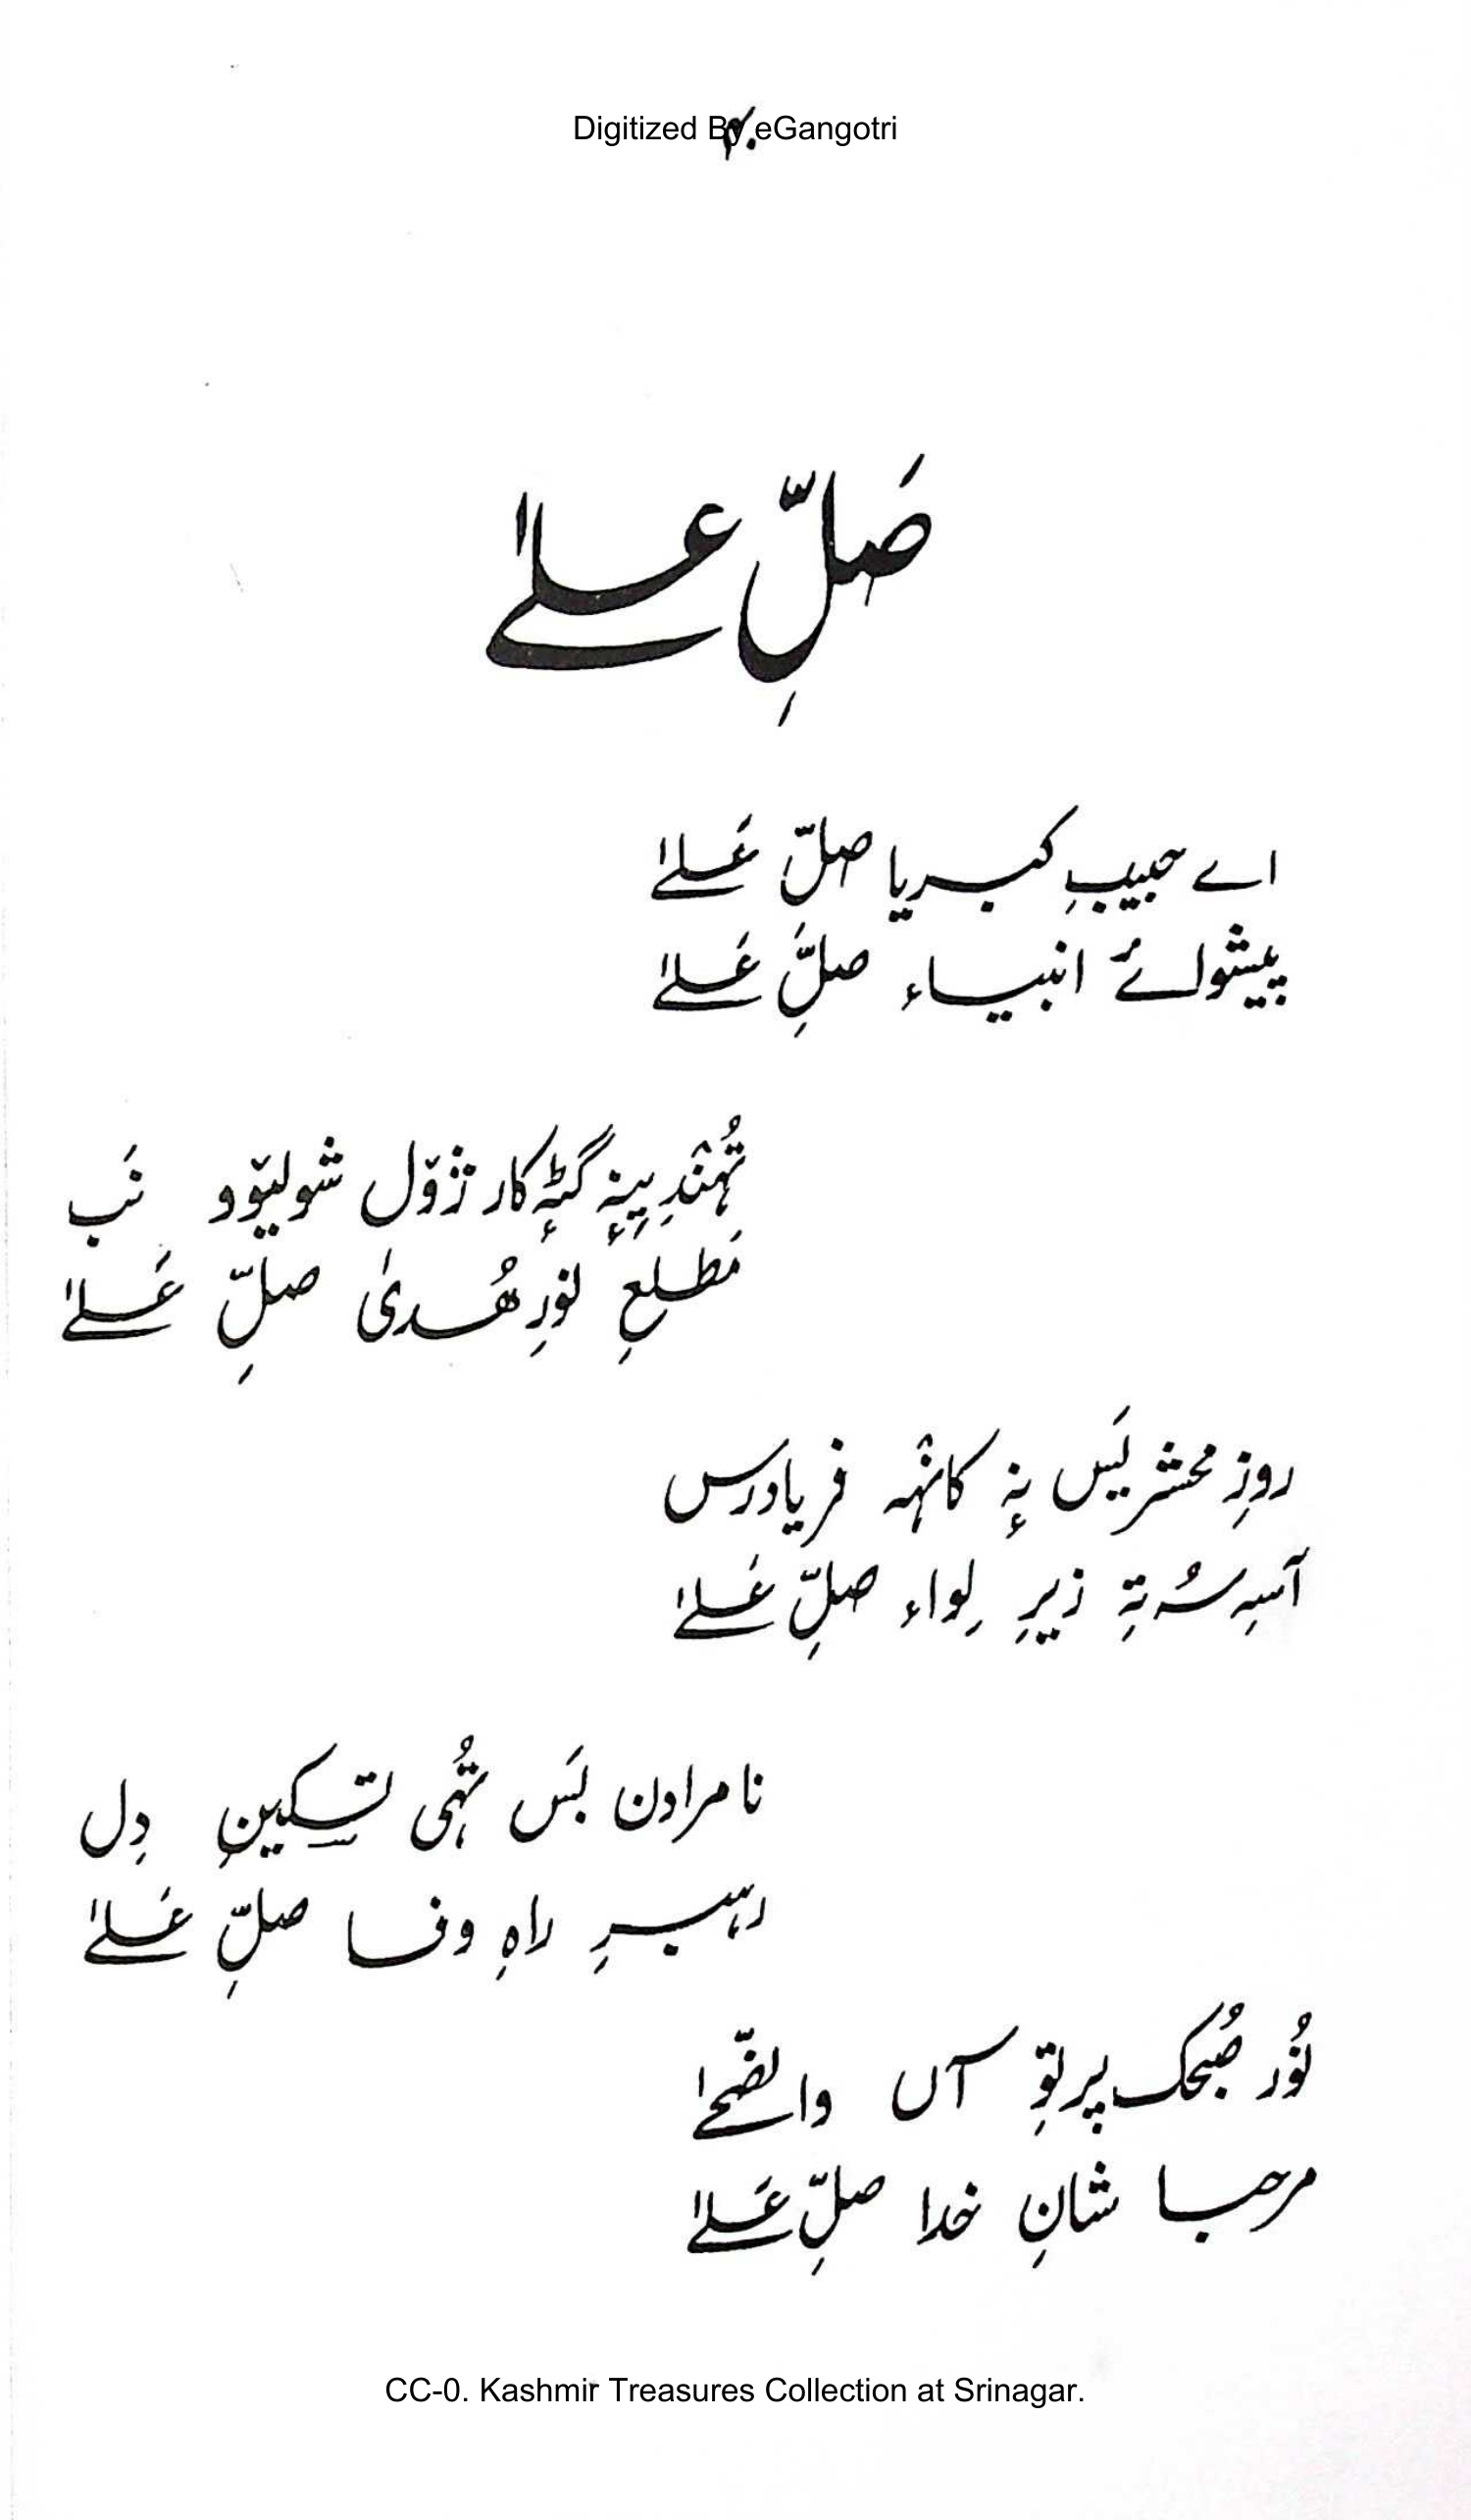 Digitized By eGangotri
۴۰
صَلِّ عَلےٰ
اے حبیبِ کبریا صلِّ عَلےٰ
پیشوائے انبیاء صلِّ عَلےٰ
تُہنٛدِ پیٖنہٕ گٹہٕ کار ژوٚل شولیوٚو نَب
مَطلعِ نوٗرِ ھُدیٰ صلِّ عَلےٰ
روزِ محشر یَس نہٕ کانٛہہ فریادرس
آسہِ سُہ تہِ زیرِ لِواء صلِّ عَلےٰ
نامرادن بَس تُہی تسکینِ دِل
رہبرِ راہِ وفا صلِّ عَلےٰ
نُور صُبحک پرتوِ آں والضّحےٰ
مرحبا شانِ خدا صلِّ عَلےٰ
CC-0. Kashmir Treasures Collection at Srinagar.